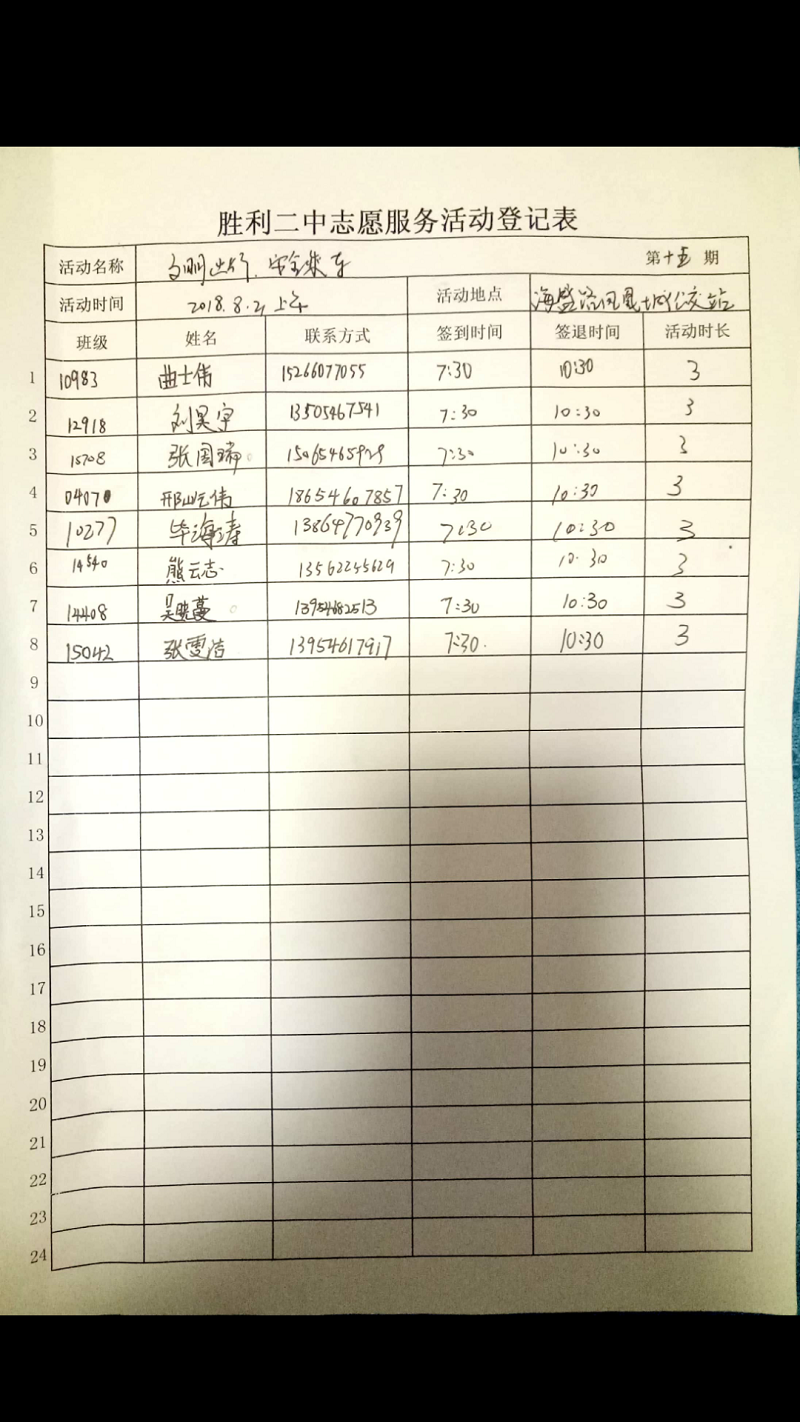 胜利二中志愿服务活动登记表
活动名称 文明出行、安全乘车 第十五期
活动时间 2018.8.2 上午 活动地点 海盛路凤凰城公交站
班级 姓名 联系方式 签到时间 签退时间 活动时长
1 10983 曲士伟 15266077055 7:30 10:30 3
2 12918 刘昊宇 13505467541 7:30 10:30 3
3 15708 张国瑞 15065465929 7:30 10:30 3
4 04070 邢屹伟 18654607857 7:30 10:30 3
5 10277 毕海涛 13864770939 7:30 10:30 3
6 14540 熊云志 13562245629 7:30 10:30 3
7 14408 吴晓蔓 13954682513 7:30 10:30 3
8 15042 张雯洁 13954617917 7:30 10:30 3
9
10
11
12
13
14
15
16
17
18
19
20
21
22
23
24